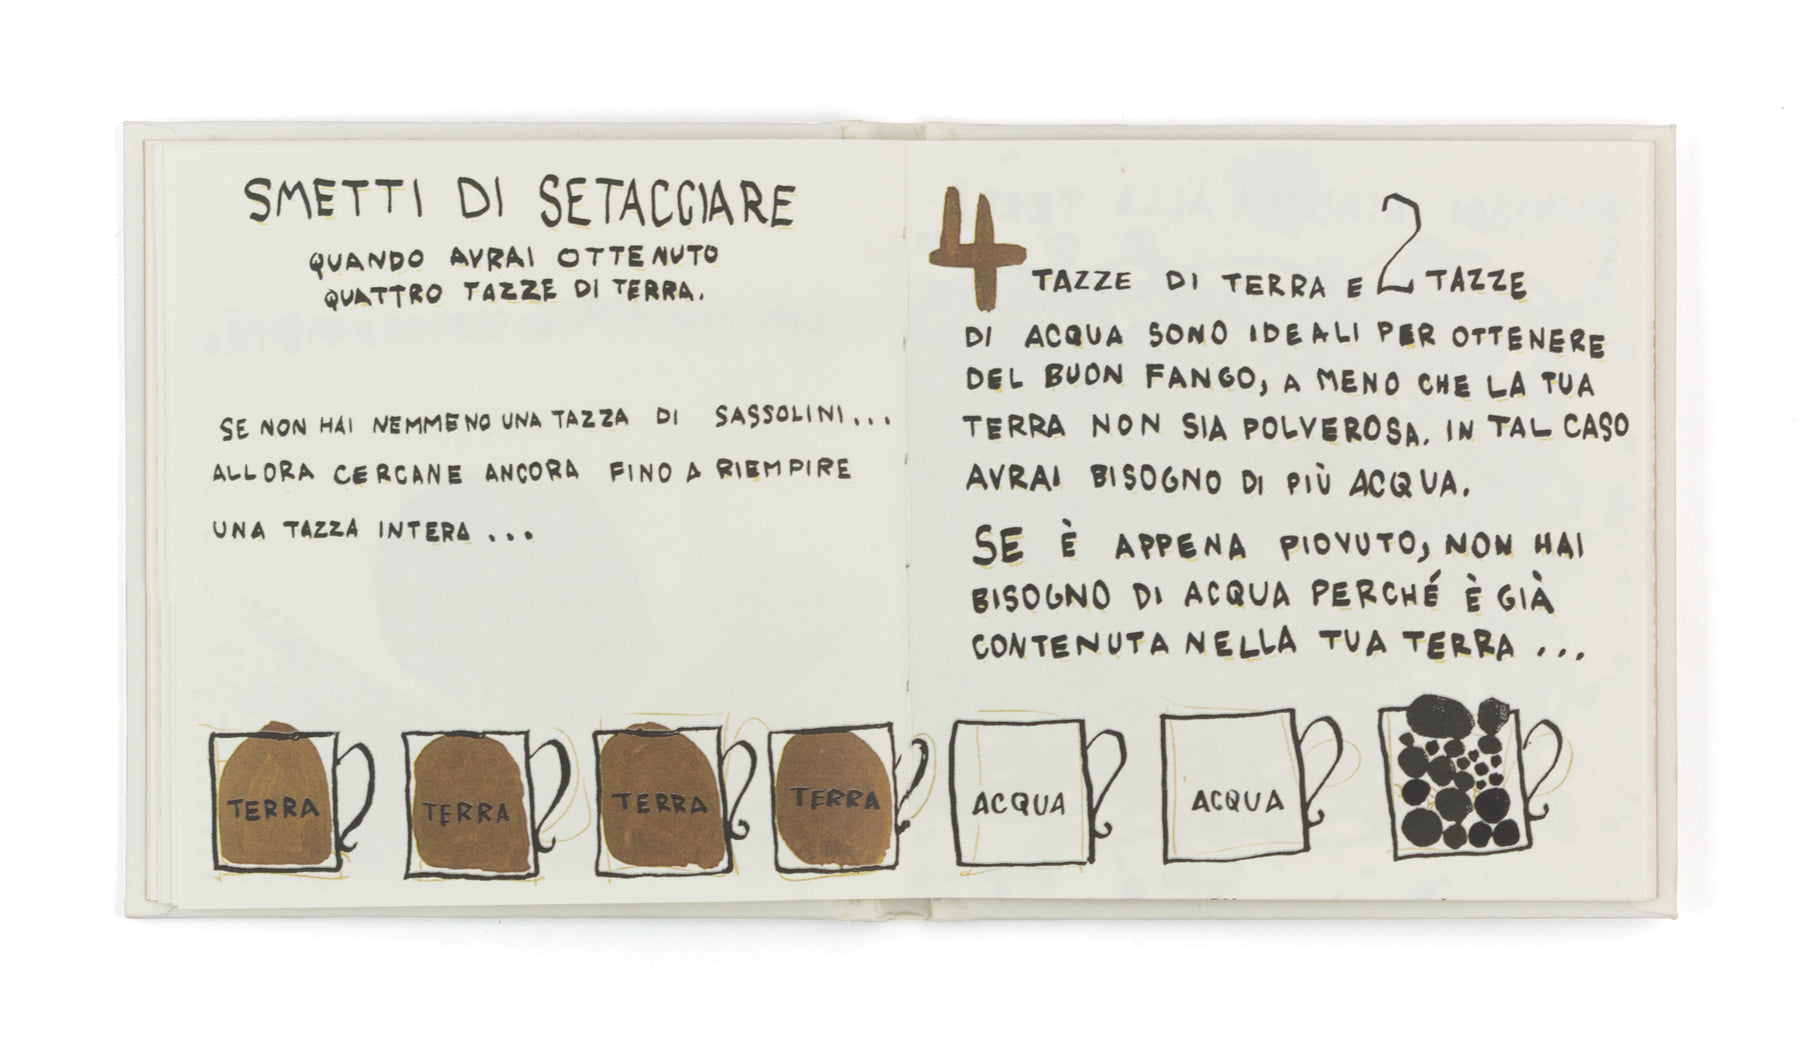 SMETTI DI SETACCIARE
QUANDO AVRAI OTTENUTO
QUATTRO TAZZE DI TERRA.
SE NON HAI NEMMENO UNA TAZZA DI SASSOLINI...
ALLORA CERCANE ANCORA FINO A RIEMPIRE
UNA TAZZA INTERA...
TERRA
TERRA
TERRA
TERRA
4 TAZZE DI TERRA E 2 TAZZE
DI ACQUA SONO IDEALI PER OTTENERE
DEL BUON FANGO, A MENO CHE LA TUA
TERRA NON SIA POLVEROSA. IN TAL CASO
AVRAI BISOGNO DI PIÙ ACQUA.
SE È APPENA PIOVUTO, NON HAI
BISOGNO DI ACQUA PERCHÉ È GIÀ
CONTENUTA NELLA TUA TERRA...
ACQUA
ACQUA